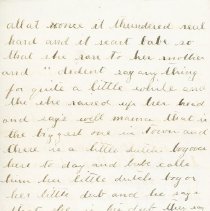 all at wonce it thundered real
hard and it scart babe so
that she ran to her mother
and " didint say any thing
for quite a little while and
the she raised up her head
and says well mama that is
the bigest one in town and
there is a little dutch boy over
here to day and babe calls
him her little dutch boy or
her little dut and he says
that he is his dut they say